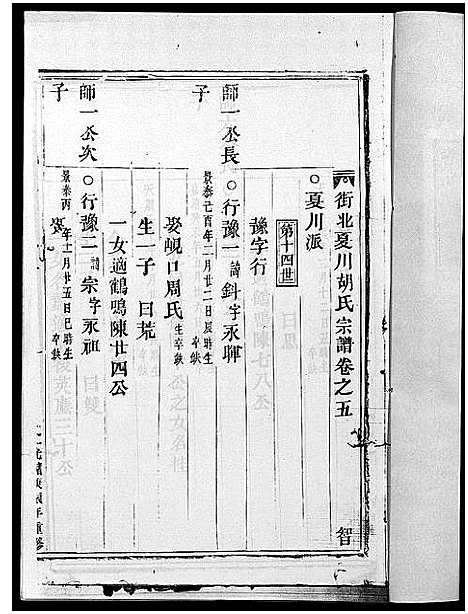 街北夏川胡氏宗譜卷之五
智
○夏川派
第十四世
豫字行
師一公長子
○行豫一諱斜字永暉
景泰己酉年二月廿二日辰時生卒缺
娶峴口周氏生卒缺
生一子曰荒
一女適鶴鳴陳廿四公
師一公次子
○行豫二諱宗字永祖
景泰丙年十一月廿五日巳時生卒缺